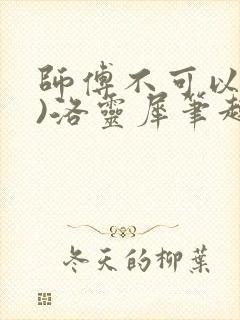 師傅不可以
)洛靈犀筆趣
冬天的柳葉